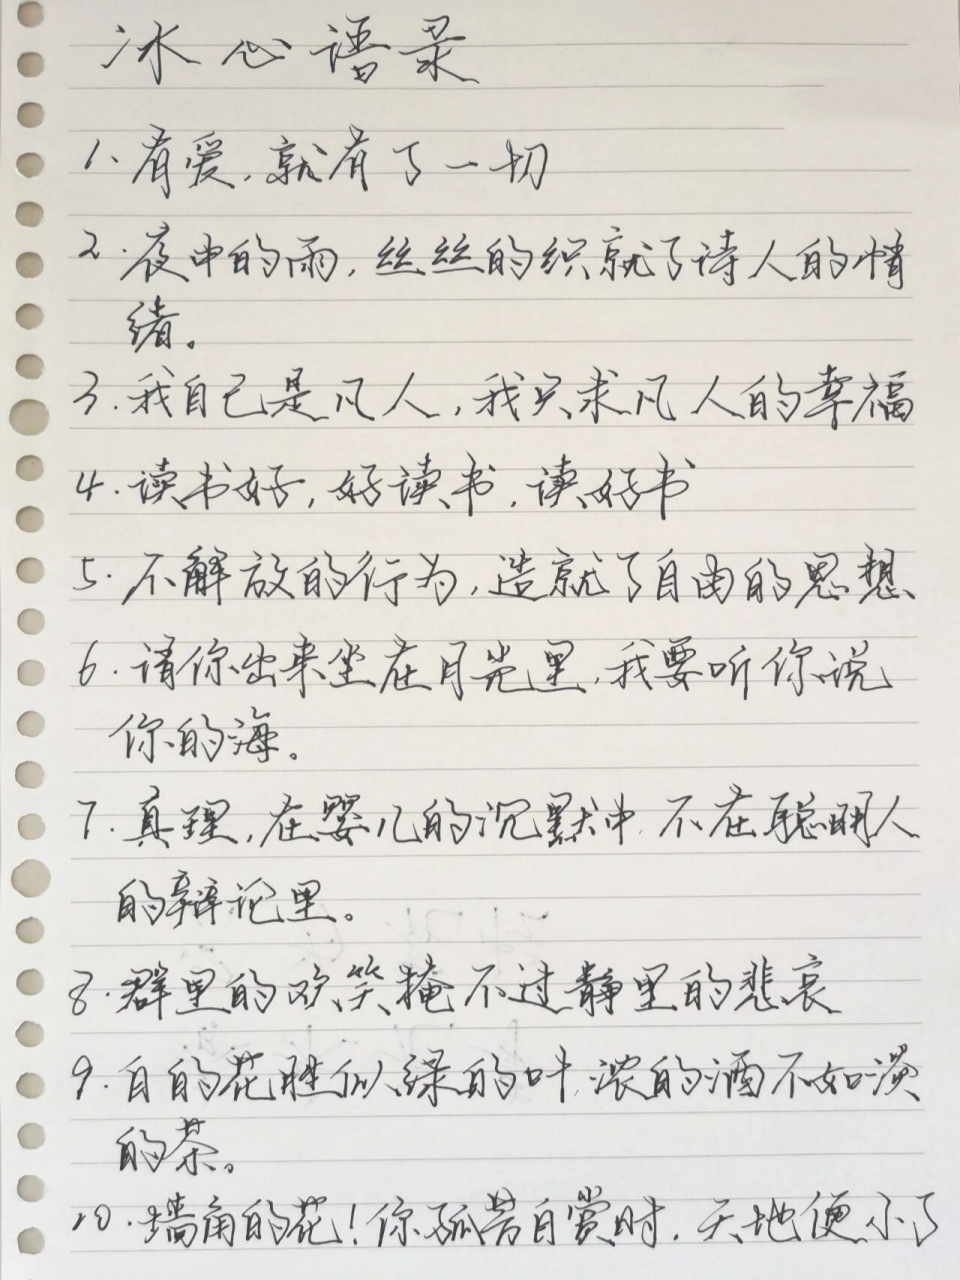 冰心语录
1、有爱,就有了一切
2.夜中的雨,丝丝的织就了诗人的情
绪。
3.我自己是凡人,我只求凡人的幸福
4.读书好,好读书,读好书
5.不解放的行为,造就了自由的思想
6.请你出来坐在月光里,我要听你说
你的海。
7.真理,在婴儿的沉默中,不在聪明人
的辩论里。
8.群里的欢笑掩不过静里的悲哀
9.白的花胜似绿的叶,浓的酒不如淡
的茶。
10.墙角的花!你孤芳自赏时,天地便小了